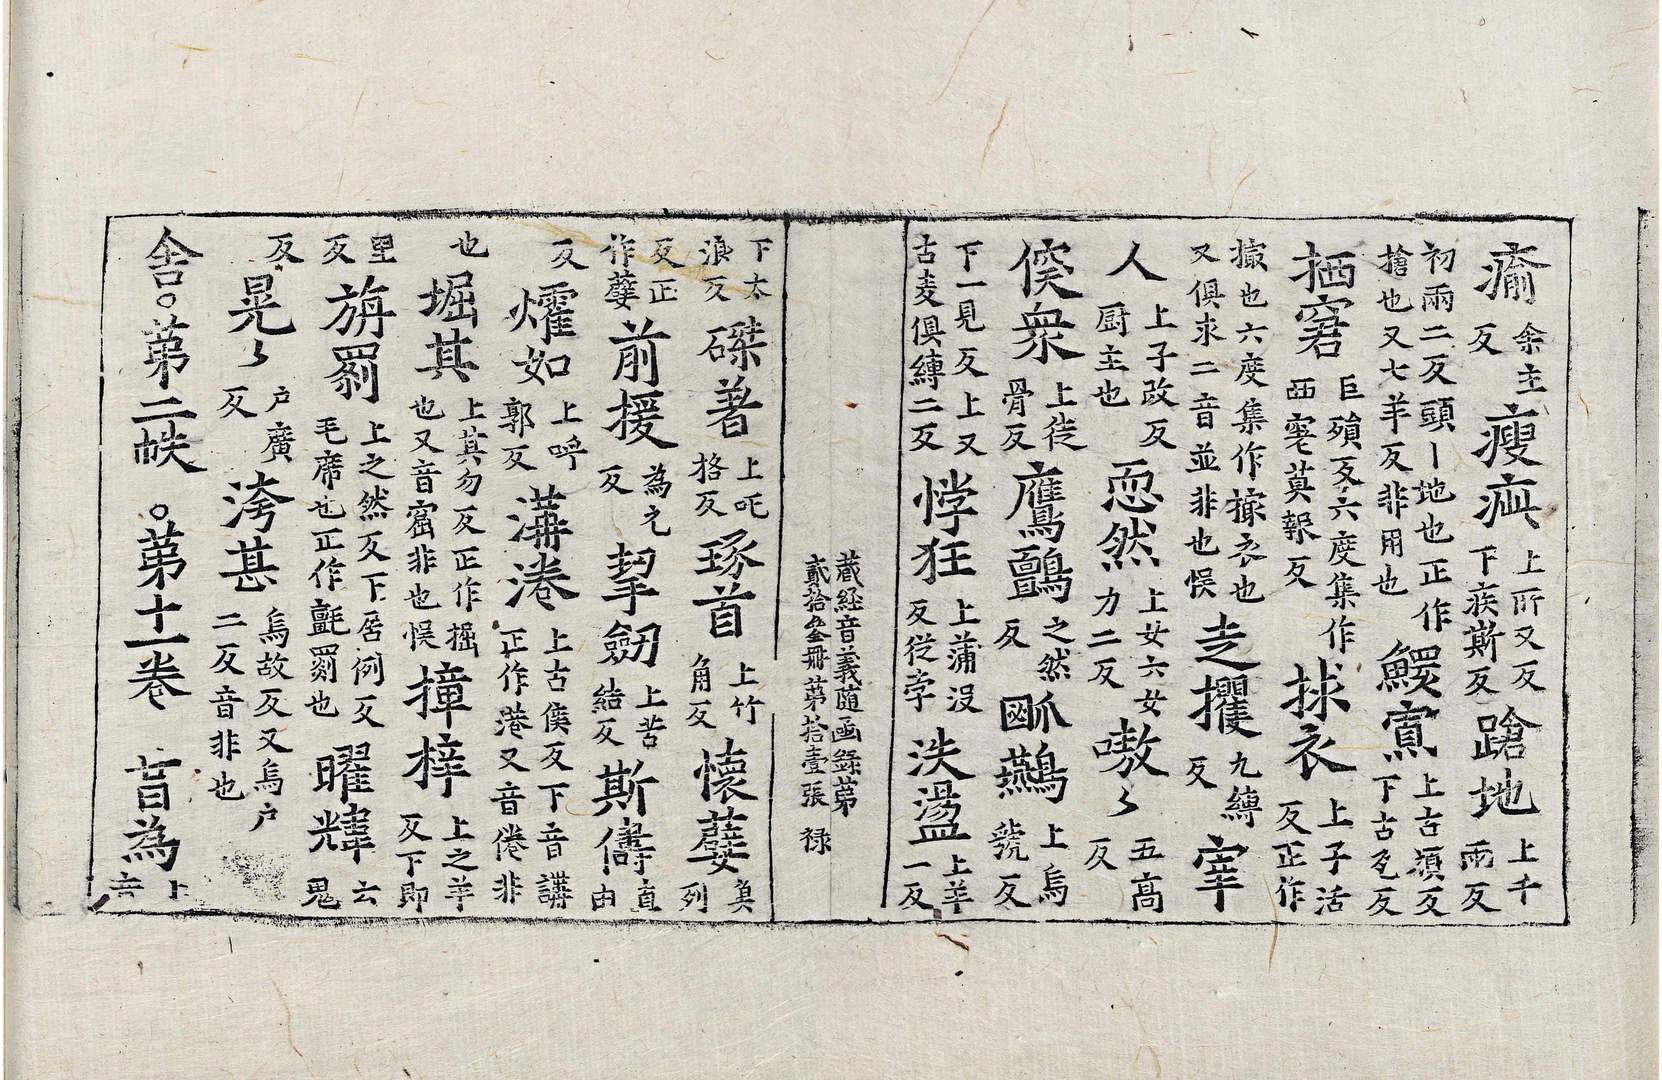 瘉余主反瘦疵上所又反下疾斯反蹌地上千兩反
初兩二反頭丨地也正作搶也又七羊反非用也鯁寘上古頂反下古乭反
栖窘巨殞反六度集作西窂莫報反捄衣上子活反正作
撮也六度集作㨿衣也又俱求二音並非也悮走攫九縛反宰
人上子改反厨主也恧然上女六女力二反嗷〻五高反
傒衆上徒骨反鷹鸇之然反䶕鷰上烏虢反
下一見反上又古麦俱縛二反悖狂上蒲没反從孛泆盪上羊一反
藏経音義随函録第貳拾叁冊第拾壹張 禄
下太浪反磔著上吒格反琢首上竹角反懷孽魚列
反正作孽前援為元反挈劒上苦結反斯儔直由
反㸌如上呼郭反溝港上古侯反下音講正作港又音倦非
也堀其上其勿反正作掘也又音窟非也悮撞梓上之羊反下即
里反旃罽上之然反下居例反毛席也正作氈罽也曜暐云鬼
反晃〻戶廣反洿甚烏故反又烏戶二反音非也
舍。第二帙。第十一卷 盲為上音